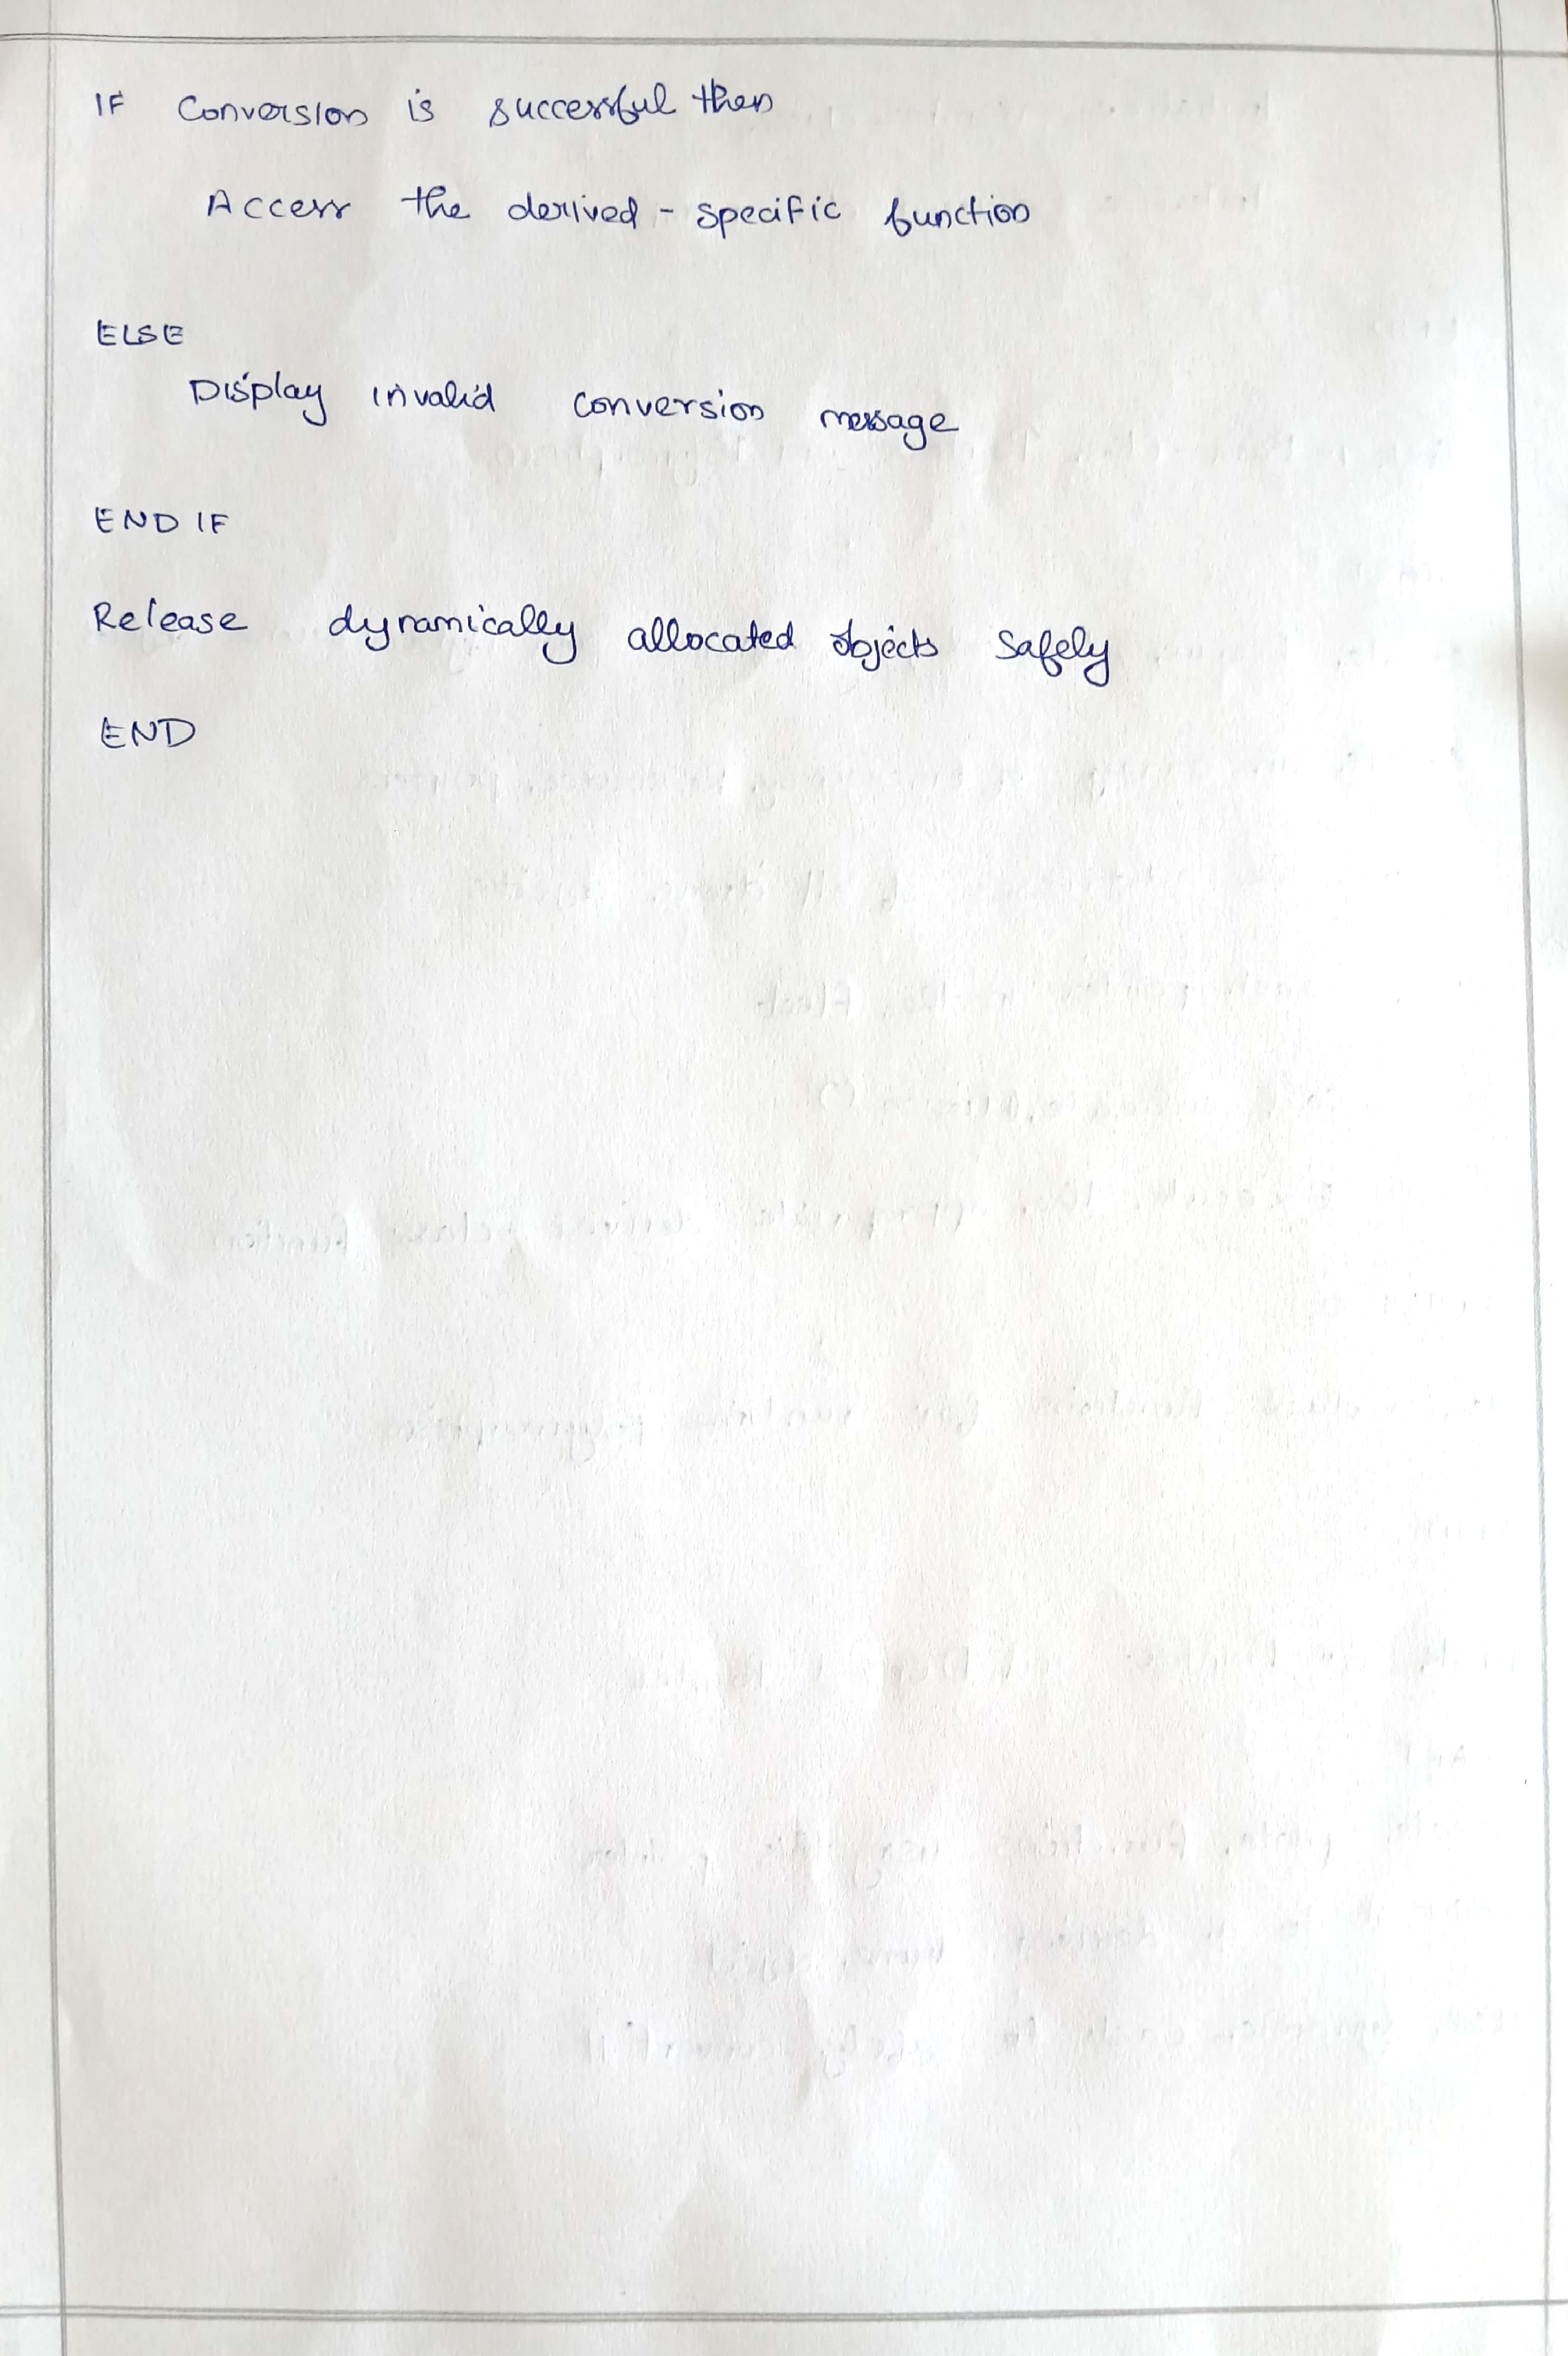 IF Conversion is successful then
Access the derived - specific function
ELSE
Display invalid conversion message
END IF
Release dynamically allocated objects safely
END